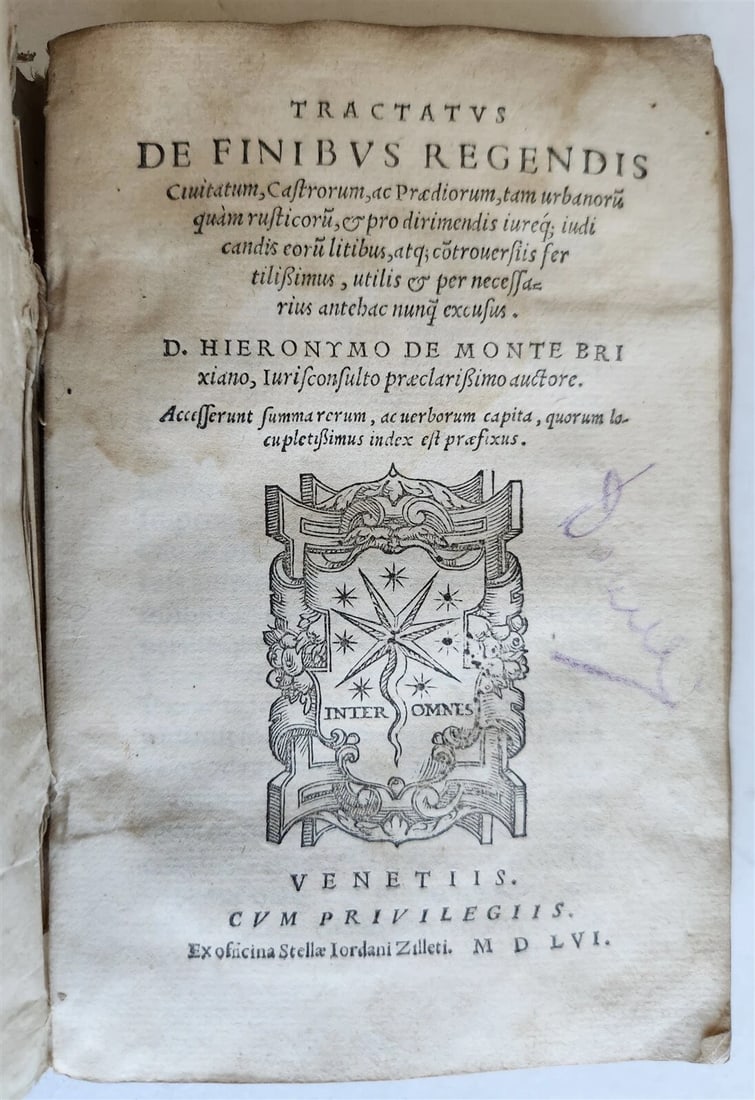 TRACTATVS
DE FINIBVS REGENDIS
Ciuitatum, Castrorum, ac Prædiorum, tam urbanorũ
quàm rusticorũ, & pro dirimendis iureq́; iudi
candis eorũ litibus, atq; cõtrouersiis fer
tilißimus, utilis & per necessa=
rius antehac nunq̃ excusus.
D. HIERONYMO DE MONTE BRI
xiano, Iurisconsulto præclarißimo auctore.
Accesserunt summa rerum, ac uerborum capita, quorum lo-
cupletißimus index est præfixus.
INTER OMNES
VENETIIS.
CVM PRIVILEGIIS.
Ex officina Stellæ Iordani Zilleti. M D LVI.